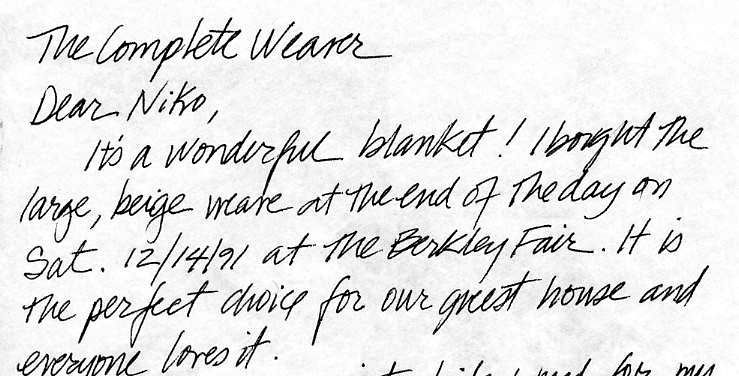 The Complete Weaver
Dear Niko,
It's a wonderful blanket! I bought the
large, beige weave at the end of the day on
Sat. 12/14/91 at the Berkley Fair. It is
the perfect choice for our guest house and
everyone loves it.
for my